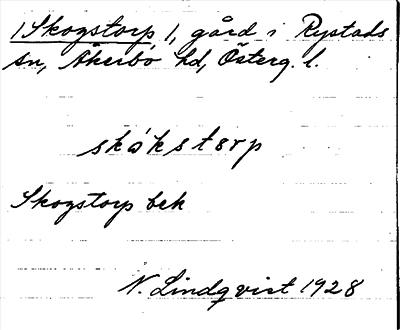 /Skogstorp/, gård i Rystads
sn, Åkerbo hd, Österg. l.
skòkstorp
Skogstorp bek
N. Lindqvist 1928